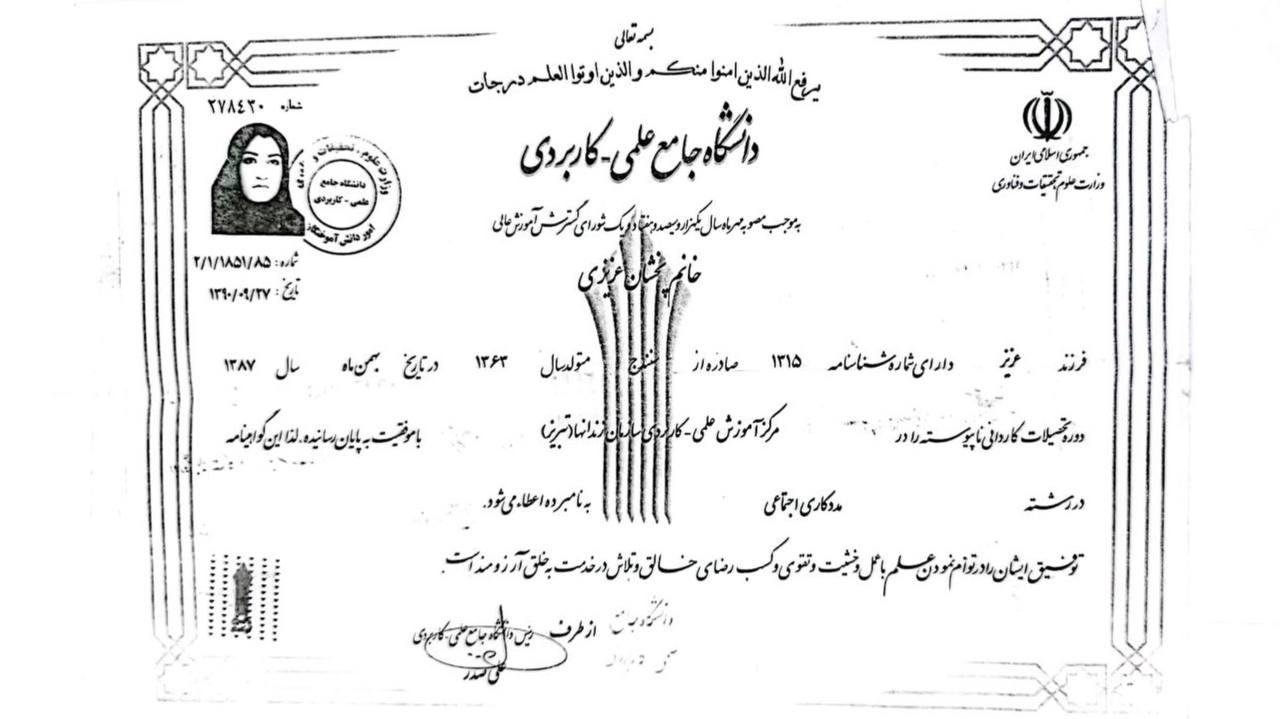 بسمه تعالی
یرفع الله الذین امنوا منکم و الذین اوتوا العلم درجات
شماره ۲۷۸۴۲۰
دانشگاه جامع علمی-کاربردی
جمهوری اسلامی ایران
وزارت علوم، تحقیقات و فناوری
وزارت علوم، تحقیقات و
دانشگاه جامع
علمی - کاربردی
امور دانش آموختگان
به موجب مصوبه مهرماه سال یکهزار و سیصد و هفتاد و یک شورای گسترش آموزش عالی
شماره: ۲/۱/۱۸۵۱/۸۵
تاریخ: ۱۳۹۰/۰۹/۲۷
خانم پخشان عزیزی
فرزند عزیز دارای شماره شناسنامه ۱۳۱۵ صادره از سنندج متولد سال ۱۳۶۳ در تاریخ بهمن ماه سال ۱۳۸۷
دوره تحصیلات کاردانی ناپیوسته را در مرکز آموزش علمی-کاربردی سازمان زندانها (تبریز) با موفقیت به پایان رسانیده، لذا این گواهینامه
در رشته مددکاری اجتماعی به نامبرده اعطاء می شود.
توفیق ایشان را در توأم نمودن علم با عمل و خشیت و تقوی و کسب رضای خالق و تلاش در خدمت به خلق آرزومند است.
دانشگاه جامع
از طرف رئیس دانشگاه جامع علمی-کاربردی
علی صدر